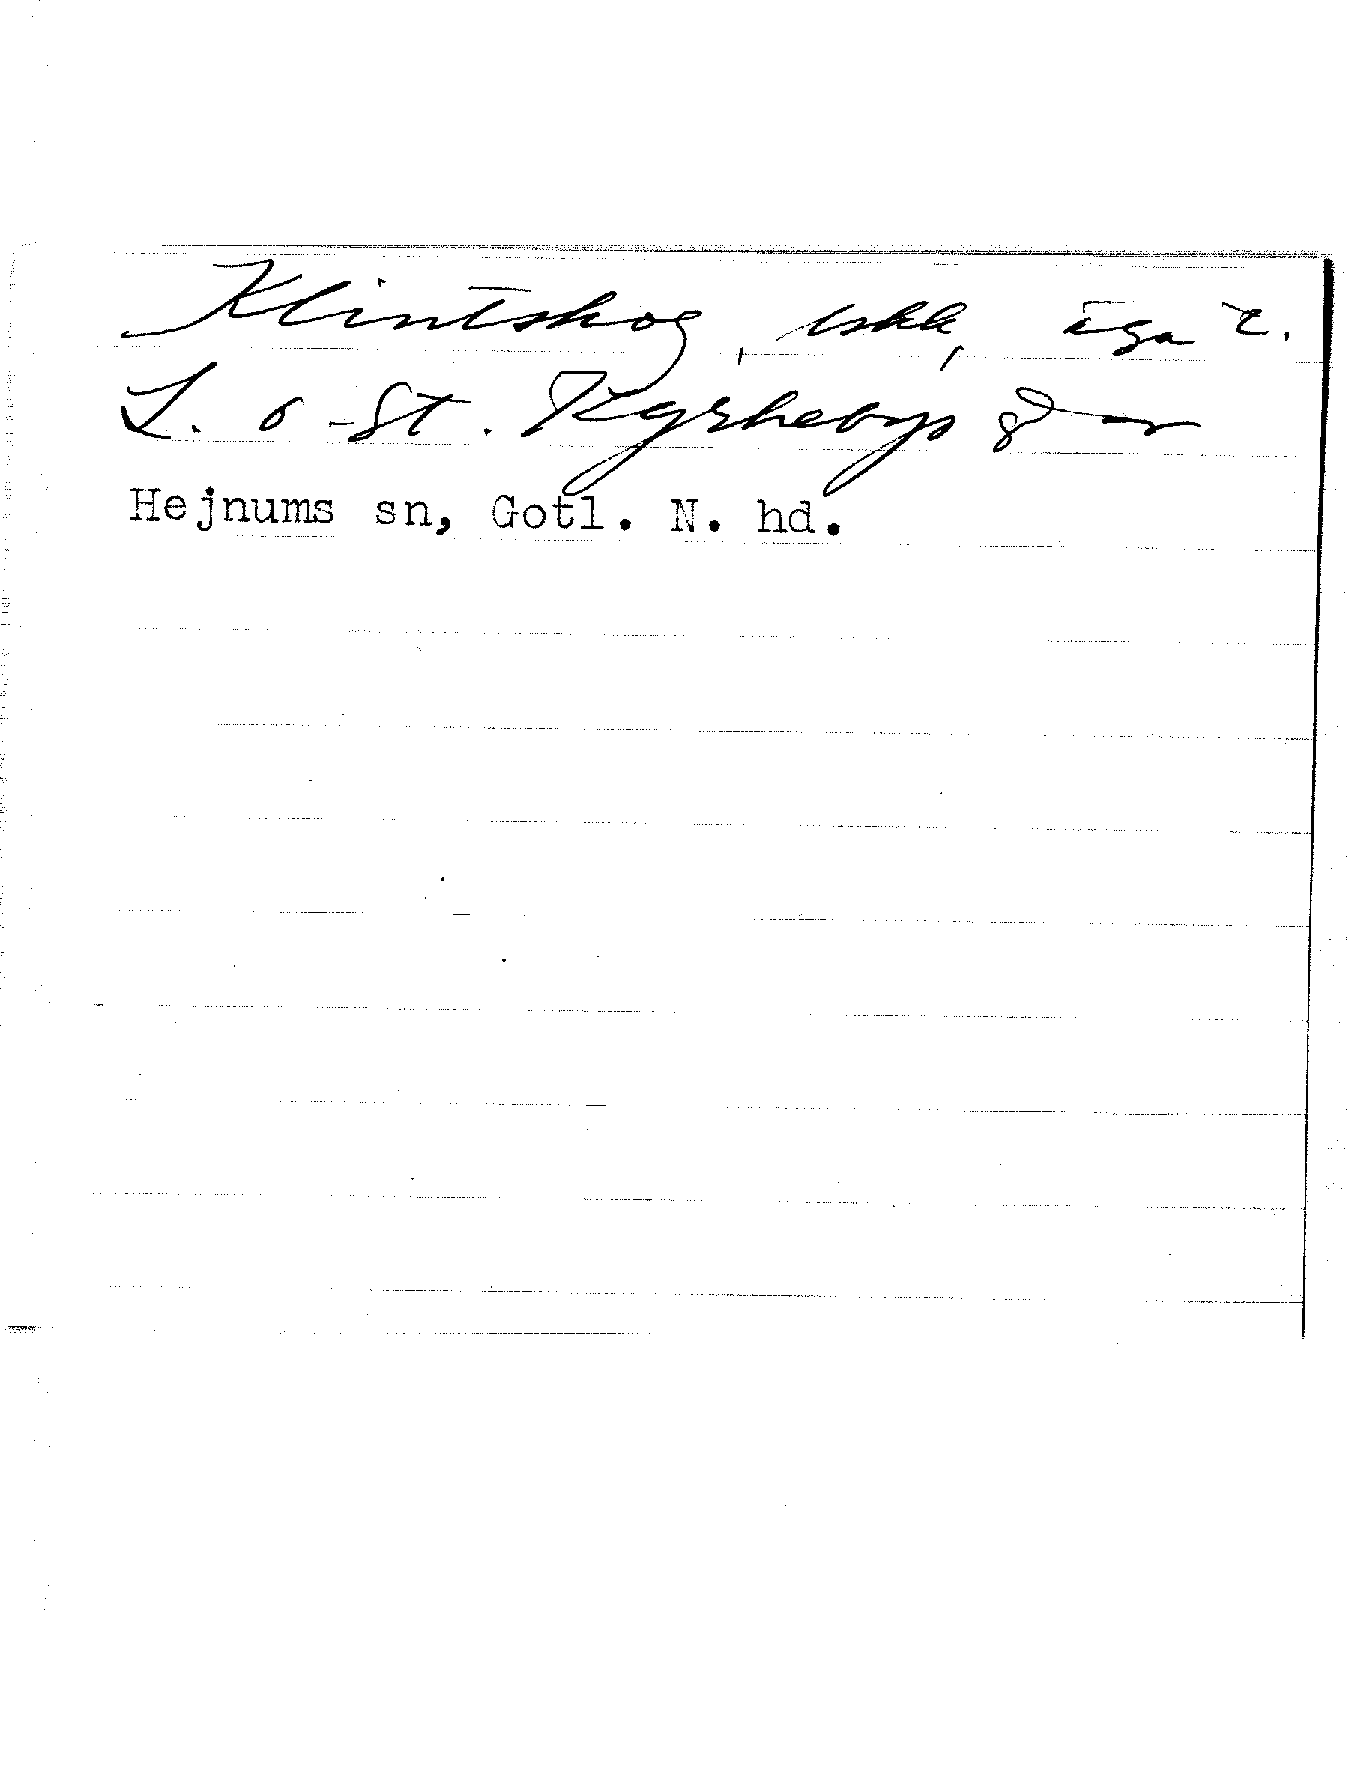 Klintskog, lskk, äga t.
L. o St. Kyrkebys g
Hejnums sn, Gotl. N. hd.